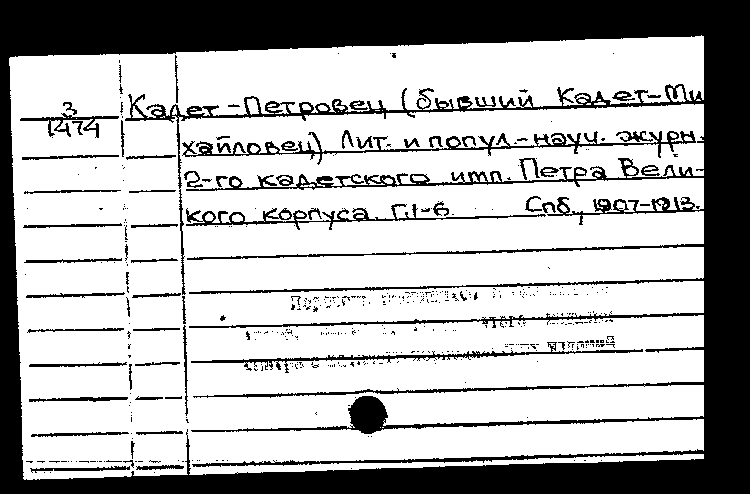 3
1474
Кадет-Петровец (бывший Кадет-Ми
хайловец). Лит. и попул.-науч. журн.
2-го кадетского имп. Петра Вели-
кого корпуса. Г.1-6 Спб., 1907-1913.